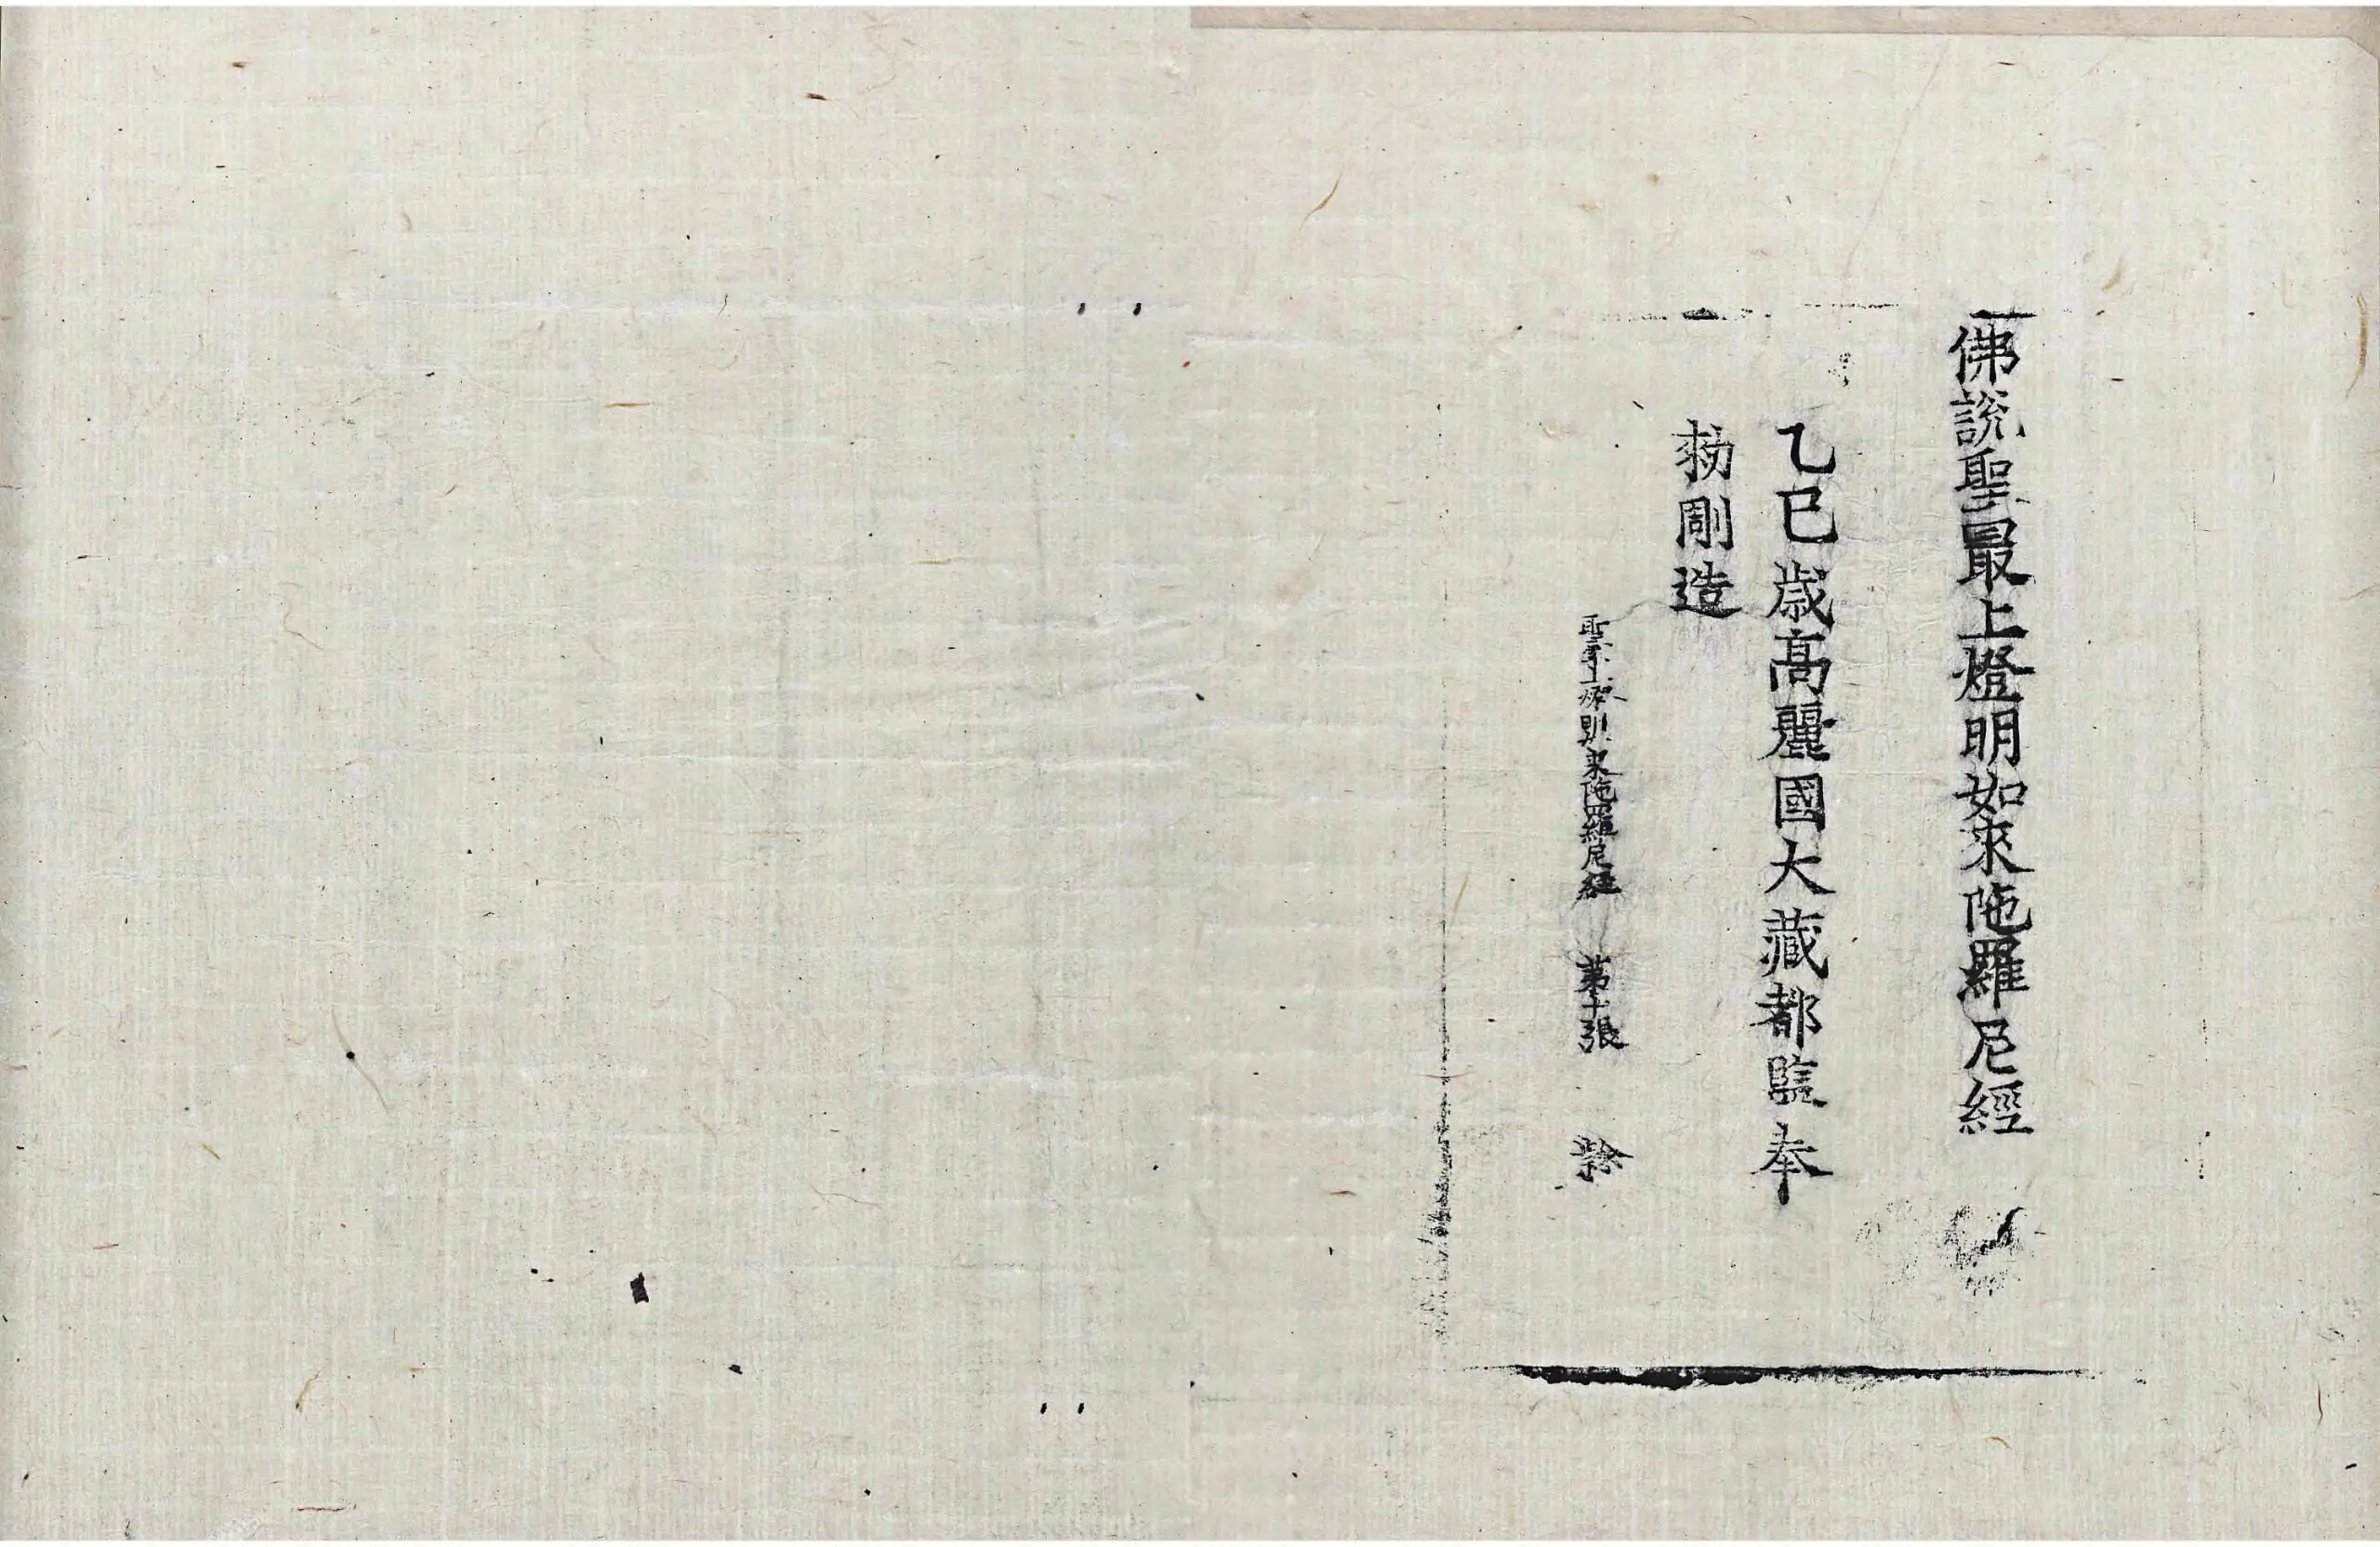 佛說聖最上燈明如來陁羅尼經
乙巳歲高麗國大藏都監奉
勑彫造
聖來陁羅尼經 第十張